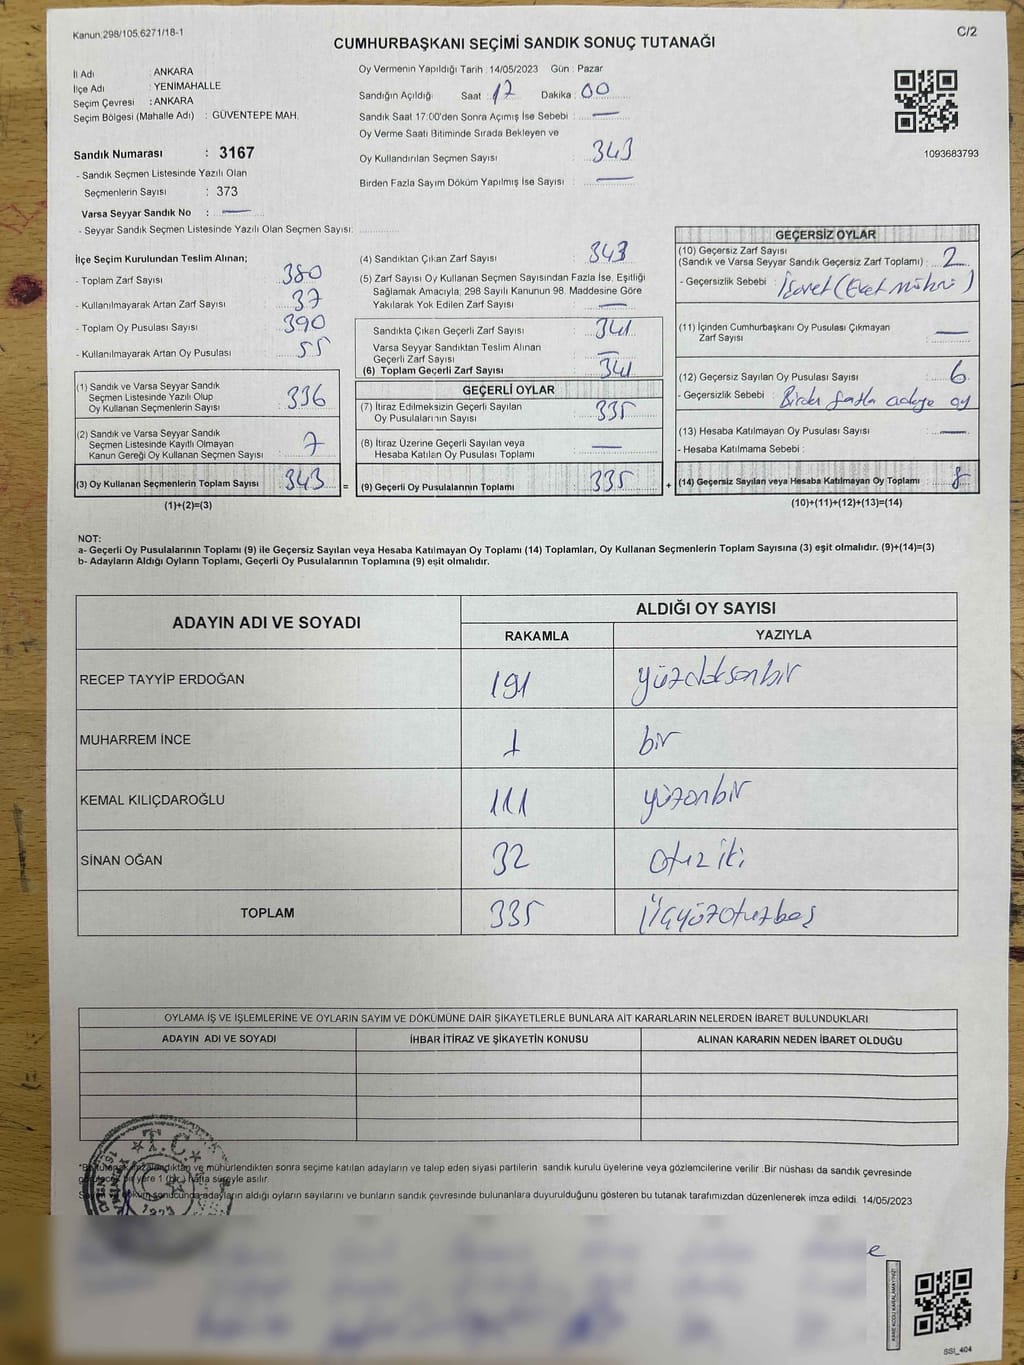 Kanun 298/105.6271/18-1
C/2
CUMHURBAŞKANI SEÇİMİ SANDIK SONUÇ TUTANAĞI
İl Adı ANKARA
İlçe Adı : YENİMAHALLE
Seçim Çevresi : ANKARA
Seçim Bölgesi (Mahalle Adı) : GÜVENTEPE MAH.
Sandık Numarası : 3167
- Sandık Seçmen Listesinde Yazılı Olan
Seçmenlerin Sayısı : 373
Varsa Seyyar Sandık No : —
- Seyyar Sandık Seçmen Listesinde Yazılı Olan Seçmen Sayısı:
Oy Vermenin Yapıldığı Tarih : 14/05/2023 Gün : Pazar
Sandığın Açıldığı Saat : 17 Dakika : 00
Sandık Saat 17:00'den Sonra Açımış İse Sebebi : —
Oy Verme Saati Bitiminde Sırada Bekleyen ve
Oy Kullandırılan Seçmen Sayısı : 343
Birden Fazla Sayım Döküm Yapılmış İse Sayısı : —
1093683793
İlçe Seçim Kurulundan Teslim Alınan;
- Toplam Zarf Sayısı : 380
- Kullanılmayarak Artan Zarf Sayısı : 37
- Toplam Oy Pusulası Sayısı : 390
- Kullanılmayarak Artan Oy Pusulası : 55
(1) Sandık ve Varsa Seyyar Sandık
Seçmen Listesinde Yazılı Olup
Oy Kullanan Seçmenlerin Sayısı : 336
(2) Sandık ve Varsa Seyyar Sandık
Seçmen Listesinde Kayıtlı Olmayan
Kanun Gereği Oy Kullanan Seçmen Sayısı : 7
(3) Oy Kullanan Seçmenlerin Toplam Sayısı : 343 =
(1)+(2)=(3)
(4) Sandıktan Çıkan Zarf Sayısı : 343
(5) Zarf Sayısı Oy Kullanan Seçmen Sayısından Fazla İse, Eşitliği
Sağlamak Amacıyla, 298 Sayılı Kanunun 98. Maddesine Göre
Yakılarak Yok Edilen Zarf Sayısı : —
Sandıkta Çıkan Geçerli Zarf Sayısı : 341
Varsa Seyyar Sandıktan Teslim Alınan
Geçerli Zarf Sayısı : —
(6) Toplam Geçerli Zarf Sayısı : 341
GEÇERLİ OYLAR
(7) İtiraz Edilmeksizin Geçerli Sayılan
Oy Pusulalarının Sayısı : 335
(8) İtiraz Üzerine Geçerli Sayılan veya
Hesaba Katılan Oy Pusulası Toplamı : —
(9) Geçerli Oy Pusulalarının Toplamı : 335 +
GEÇERSİZ OYLAR
(10) Geçersiz Zarf Sayısı
(Sandık ve Varsa Seyyar Sandık Geçersiz Zarf Toplamı) : 2
- Geçersizlik Sebebi : İşaret (Evet Mührü)
(11) İçinden Cumhurbaşkanı Oy Pusulası Çıkmayan
Zarf Sayısı : —
(12) Geçersiz Sayılan Oy Pusulası Sayısı : 6
- Geçersizlik Sebebi : Birden fazla adaya oy
(13) Hesaba Katılmayan Oy Pusulası Sayısı : —
- Hesaba Katılmama Sebebi :
(14) Geçersiz Sayılan veya Hesaba Katılmayan Oy Toplamı : 8
(10)+(11)+(12)+(13)=(14)
NOT:
a- Geçerli Oy Pusulalarının Toplamı (9) ile Geçersiz Sayılan veya Hesaba Katılmayan Oy Toplamı (14) Toplamları, Oy Kullanan Seçmenlerin Toplam Sayısına (3) eşit olmalıdır. (9)+(14)=(3)
b- Adayların Aldığı Oyların Toplamı, Geçerli Oy Pusulalarının Toplamına (9) eşit olmalıdır.
ADAYIN ADI VE SOYADI ALDIĞI OY SAYISI
RAKAMLA YAZIYLA
RECEP TAYYİP ERDOĞAN 191 yüzdoksanbir
MUHARREM İNCE 1 bir
KEMAL KILIÇDAROĞLU 111 yüzonbir
SİNAN OĞAN 32 otuz iki
TOPLAM 335 Üçyüzotuzbeş
OYLAMA İŞ VE İŞLEMLERİNE VE OYLARIN SAYIM VE DÖKÜMÜNE DAİR ŞİKAYETLERLE BUNLARA AİT KARARLARIN NELERDEN İBARET BULUNDUKLARI
ADAYIN ADI VE SOYADI İHBAR İTİRAZ VE ŞİKAYETİN KONUSU ALINAN KARARIN NEDEN İBARET OLDUĞU
T.C.
ve mühürlendikten sonra seçime katılan adayların ve talep eden siyasi partilerin sandık kurulu üyelerine veya gözlemcilerine verilir. Bir nüshası da sandık çevresinde
yere 1 (bir) hafta süreyle asılır.
sonucunda adayların aldığı oyların sayılarını ve bunların sandık çevresinde bulunanlara duyurulduğunu gösteren bu tutanak tarafımızdan düzenlenerek imza edildi. 14/05/2023
KARE KODU KARALAMAYINIZ!
SSI_404